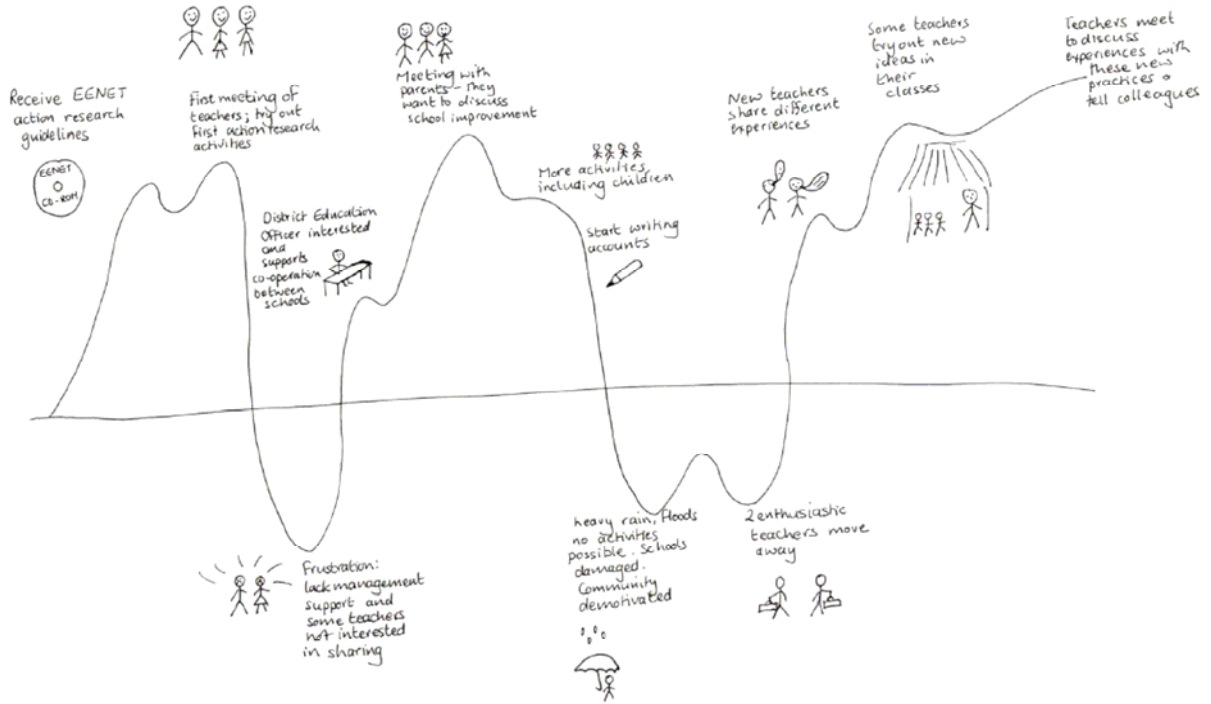 Receive EENET
action research
guidelines
EENET
CD-ROM
First meeting of
teachers; try out
First action research
activities
District Education
Officer interested
and
supports
co-operation
between
schools
Frustration:
lack management
support and
some teachers
not interested
in sharing
Meeting with
parents - they
want to discuss
school improvement
More activities,
including children
start writing
accounts
heavy rain, floods
no activities
possible. Schools
damaged.
Community
demotivated
2 enthusiastic
teachers move
away
New teachers
share different
experiences
Some teachers
try out new
ideas in
their
classes
Teachers meet
to discuss
experiences with
these new
practices &
tell colleagues